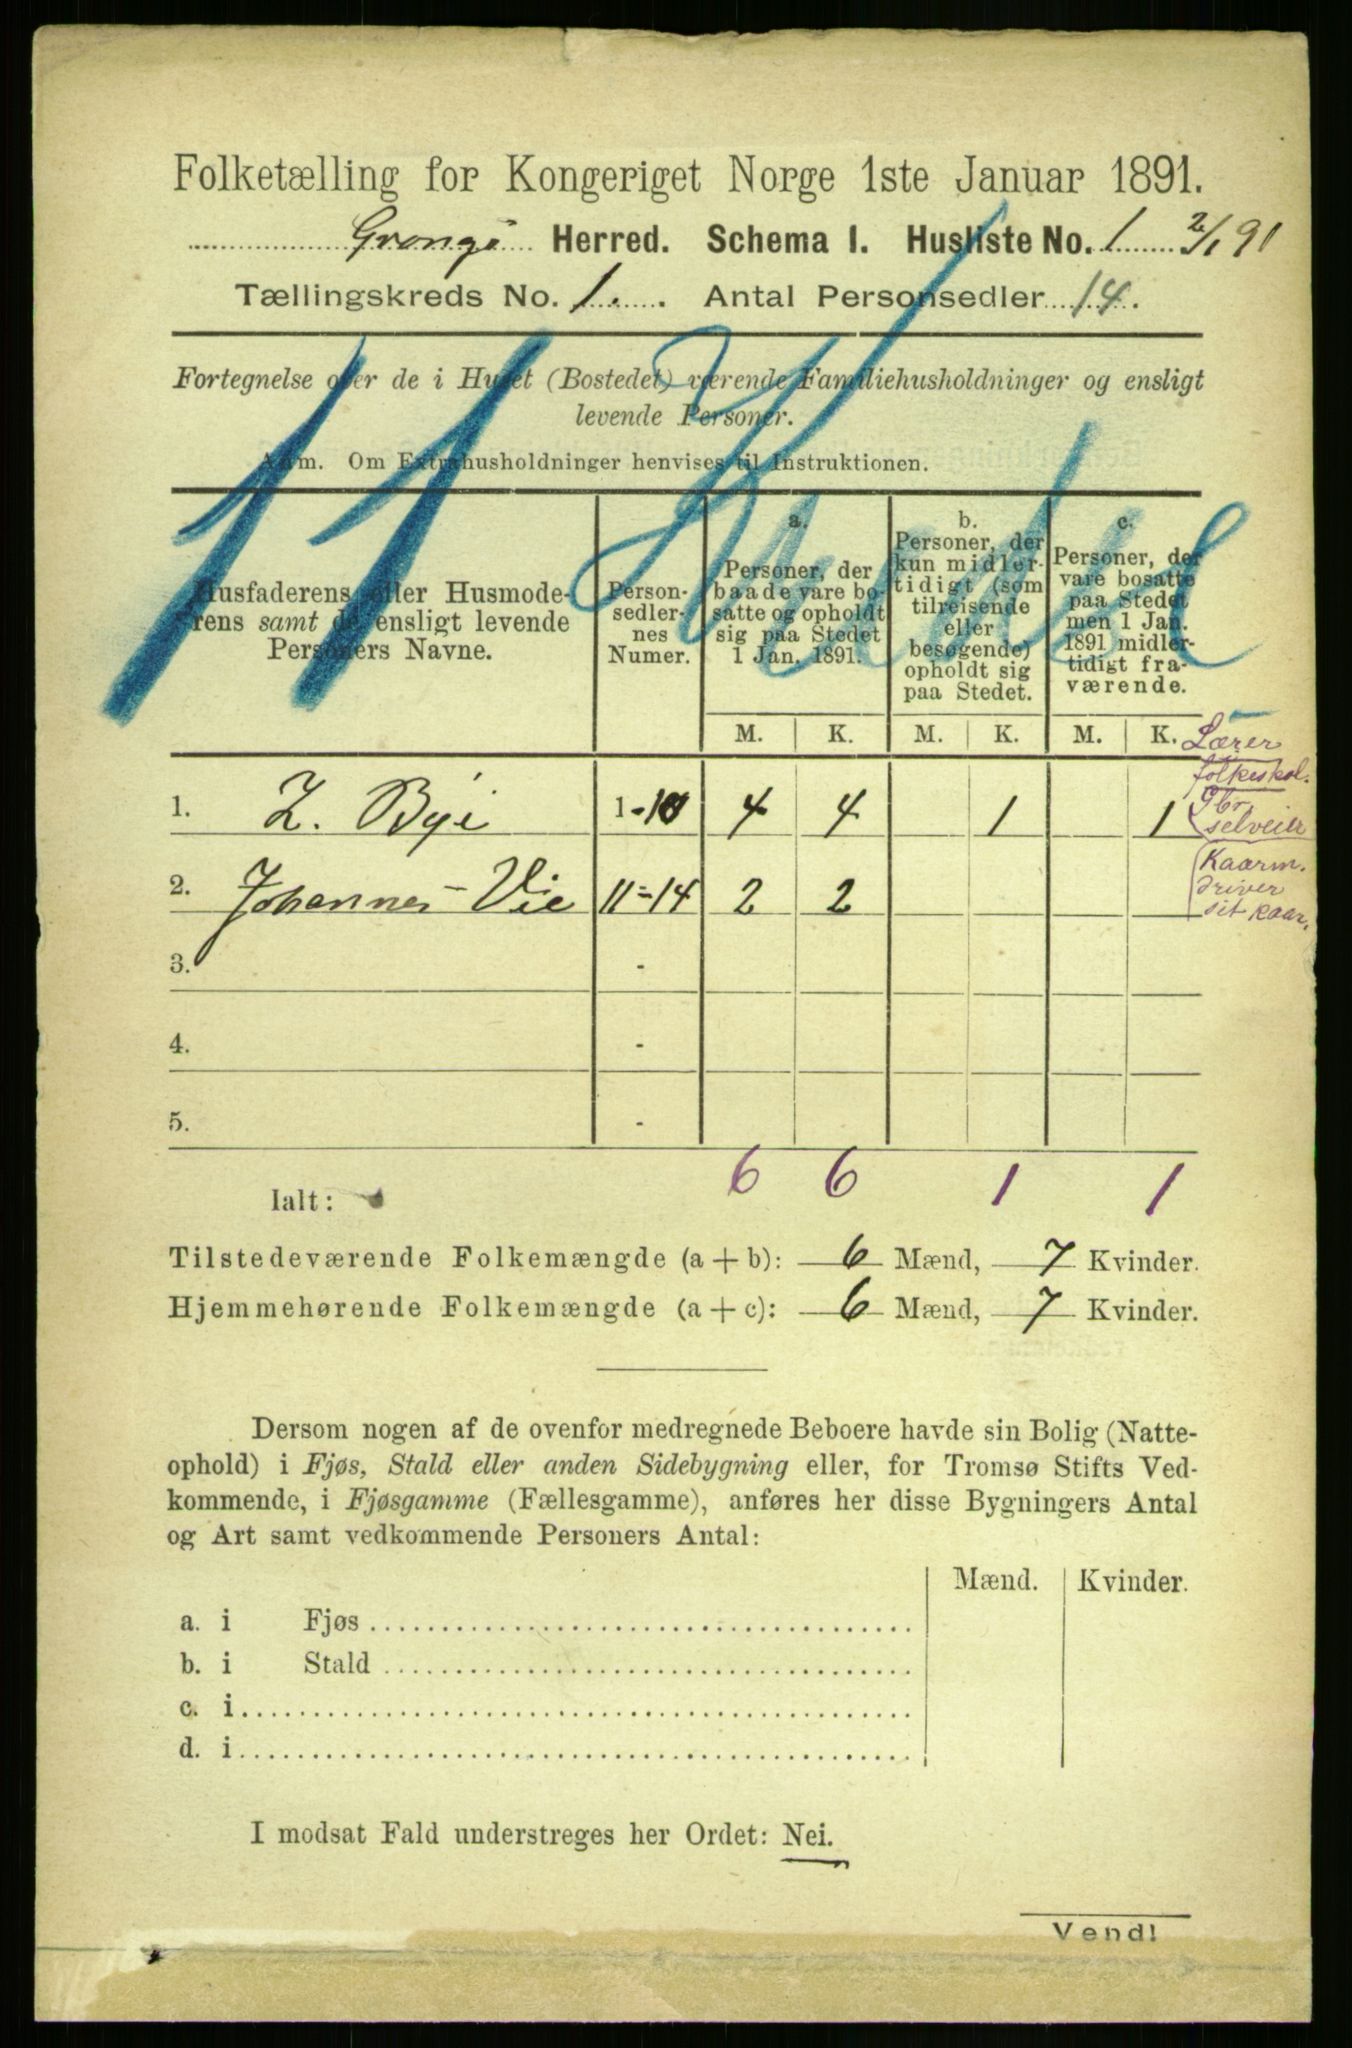 Folketælling for Kongeriget Norge 1ste Januar 1891.
Grongs Herred. Schema I. Husliste No. 1 2/1 91
Tællingskreds No. 1. Antal Personsedler 14.
Fortegnelse over de i Huset (Bostedet) værende Familiehusholdninger og ensligt
levende Personer.
Anm. Om Extrahusholdninger henvises til Instruktionen.
11
Husfaderens eller Husmode-
rens samt de ensligt levende
Personers Navne.
Person-
sedler-
nes
Numer.
a.
Personer, der
baade vare bo-
satte og opholdt
sig paa Stedet
1 Jan. 1891.
b.
Personer, der
kun midler-
tidigt (som
tilreisende
eller
besøgende)
opholdt sig
paa Stedet.
c.
Personer, der
vare bosatte
paa Stedet
men 1 Jan.
1891 midler-
tidigt fra-
værende.
M. K. M. K. M. K.
1. Z. Byé 1-10 4 4 1 1
Lærer
folkeskol.
gbr
selveier
2. Johannes Vie 11=14 2 2
Kaarm.
driver
sit kaar.
3. -
4. -
5. -
Ialt: 6 6 1 1
Tilstedeværende Folkemængde (a + b): 6 Mænd, 7 Kvinder.
Hjemmehørende Folkemængde (a + c): 6 Mænd, 7 Kvinder.
Dersom nogen af de ovenfor medregnede Beboere havde sin Bolig (Natte-
ophold) i Fjøs, Stald eller anden Sidebygning eller, for Tromsø Stifts Ved-
kommende, i Fjøsgamme (Fællesgamme), anføres her disse Bygningers Antal
og Art samt vedkommende Personers Antal:
Mænd. Kvinder.
a. i Fjøs
b. i Stald
c. i
d. i
I modsat Fald understreges her Ordet: Nei.
Vend!